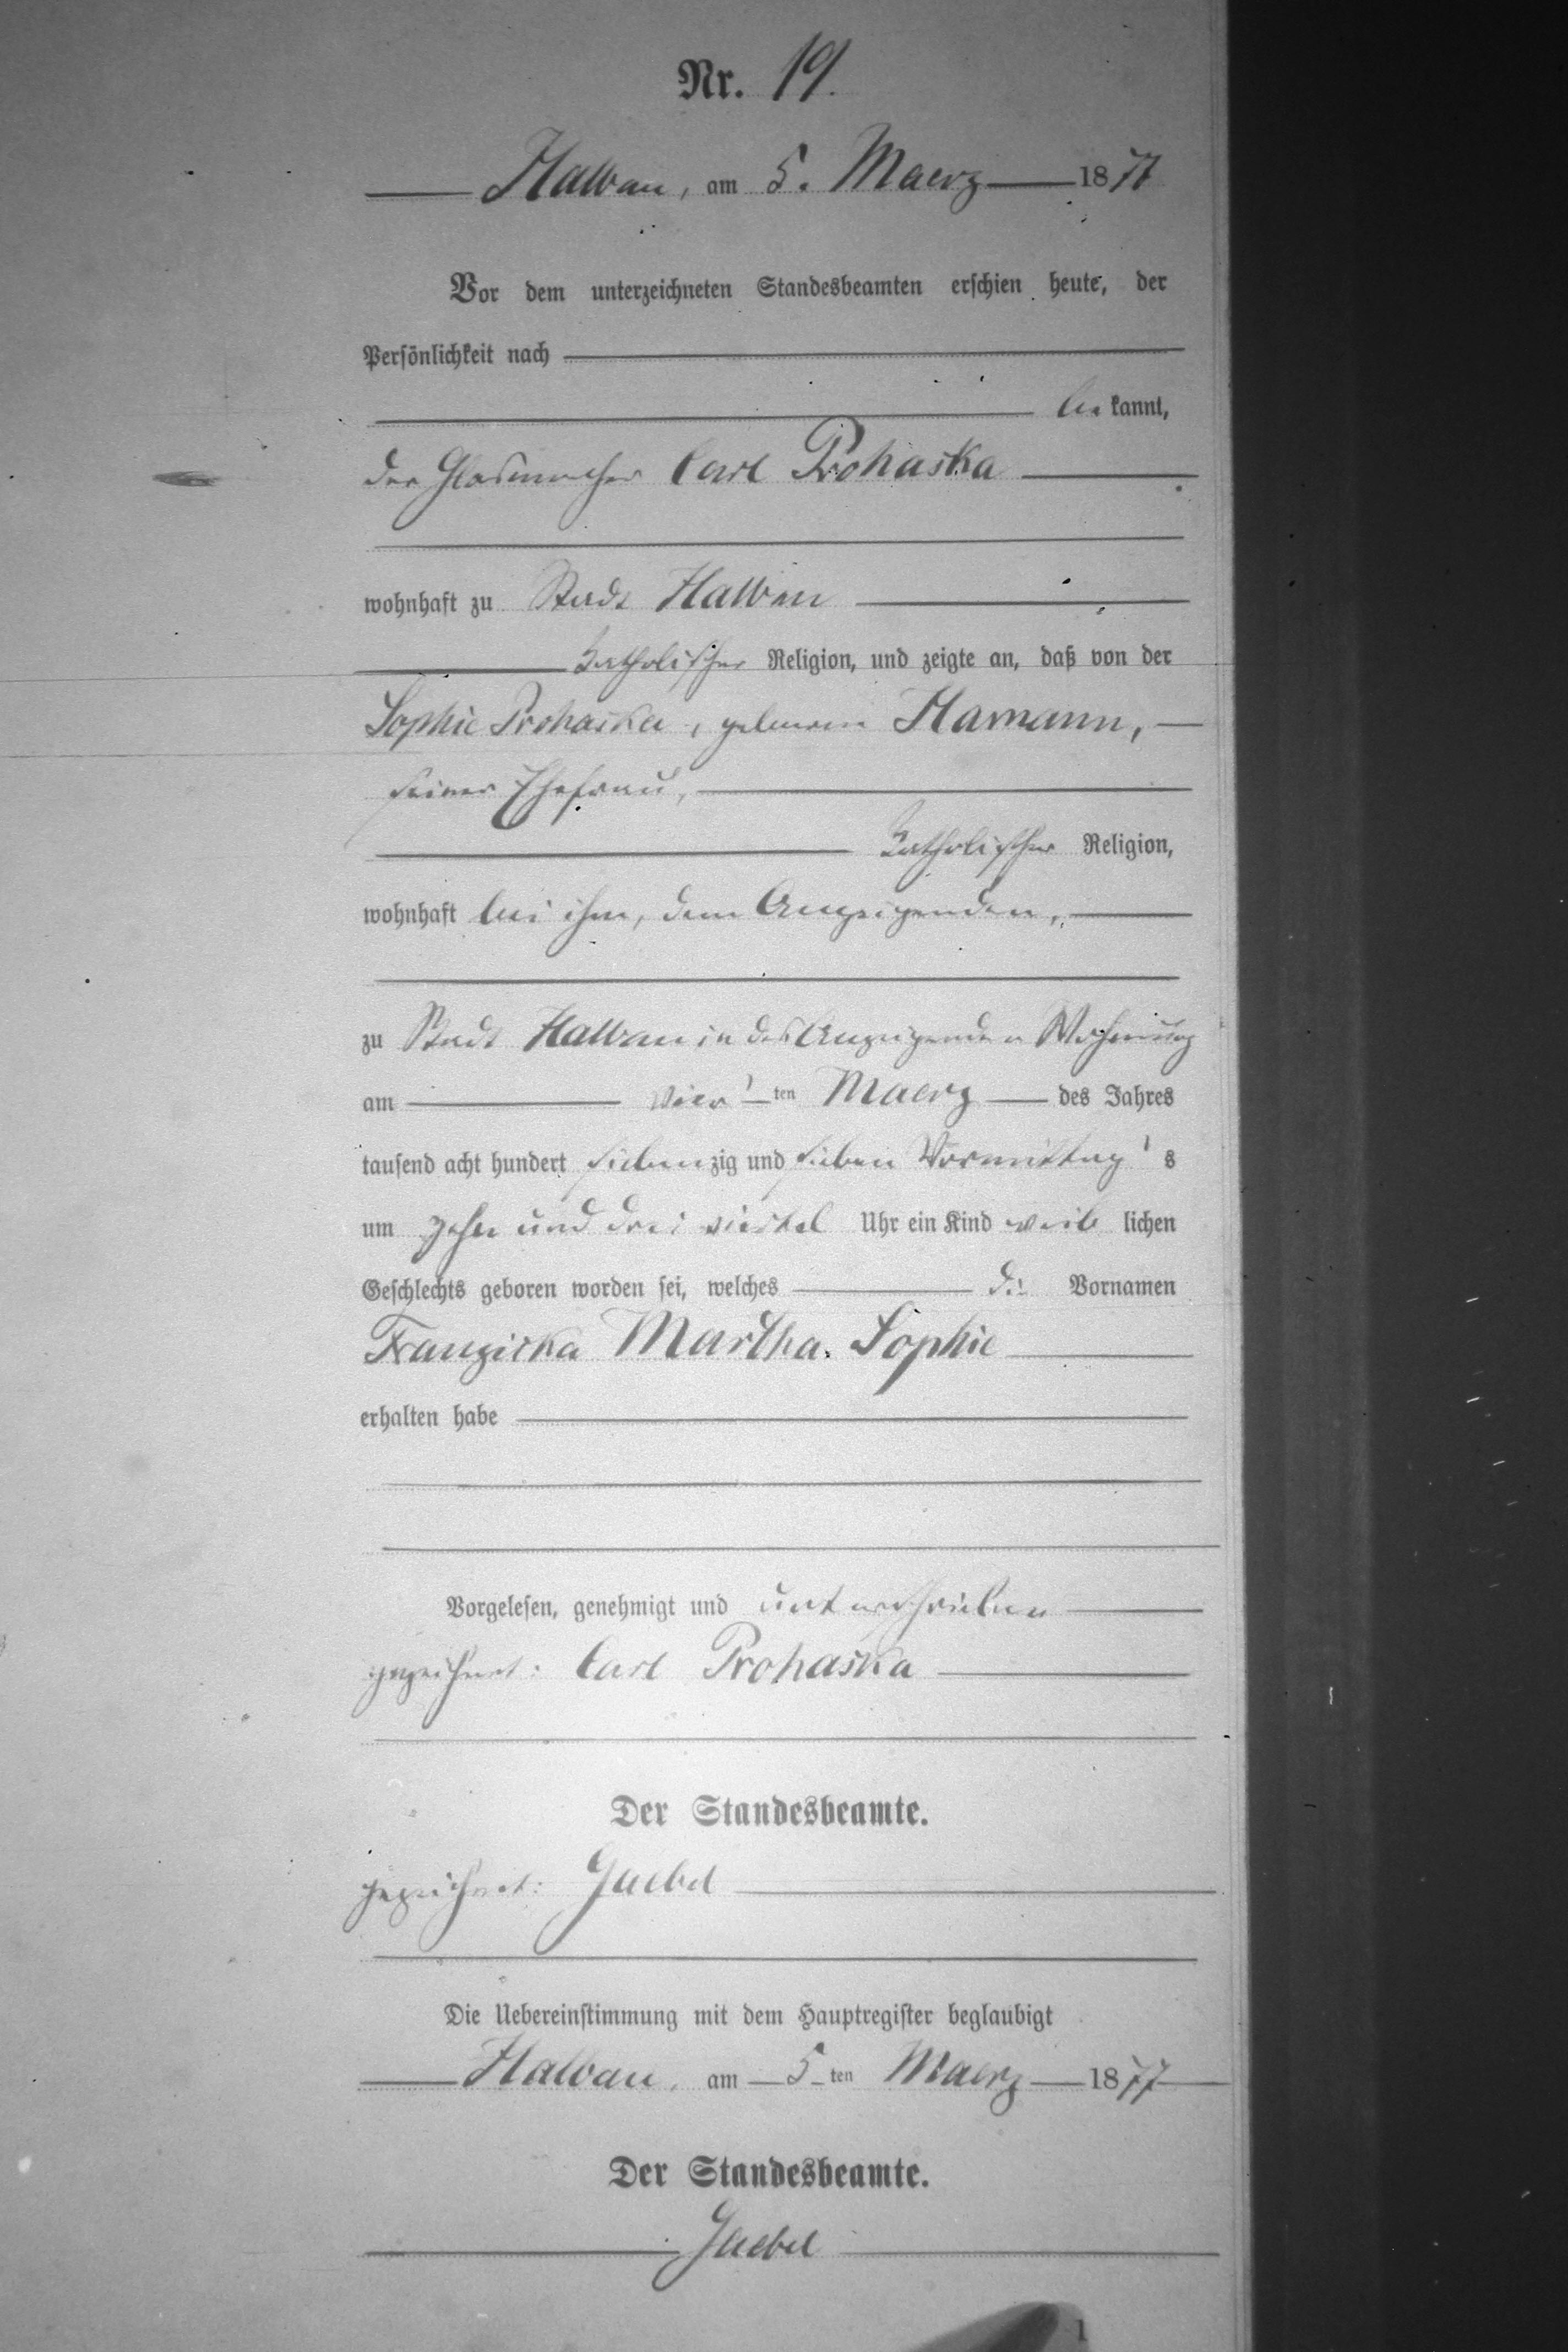 Nr. 19.
Halbau, am 5. Maerz 1877
Vor dem unterzeichneten Standesbeamten erschien heute, der
Persönlichkeit nach
be kannt,
der Glasmacher Carl Prohaska
wohnhaft zu Stadt Halbau
katholischer Religion, und zeigte an, daß von der
Sophie Prohaska, geborene Hamann,
seiner Ehefrau,
katholischer Religion,
wohnhaft bei ihm, dem Anzeigenden,
zu Stadt Halbau in des Anzeigenden Wohnung
am vier ten Maerz des Jahres
tausend acht hundert sieben zig und sieben Vormittag s
um zehn und drei viertel Uhr ein Kind weib lichen
Geschlechts geboren worden sei, welches die Vornamen
Franziska Martha Sophie
erhalten habe
Vorgelesen, genehmigt und unterschrieben
gezeichnet: Carl Prohaska
Der Standesbeamte.
gezeichnet: Gaebel
Die Uebereinstimmung mit dem Hauptregister beglaubigt
Halbau, am 5 ten Maerz 1877
Der Standesbeamte.
Gaebel
1